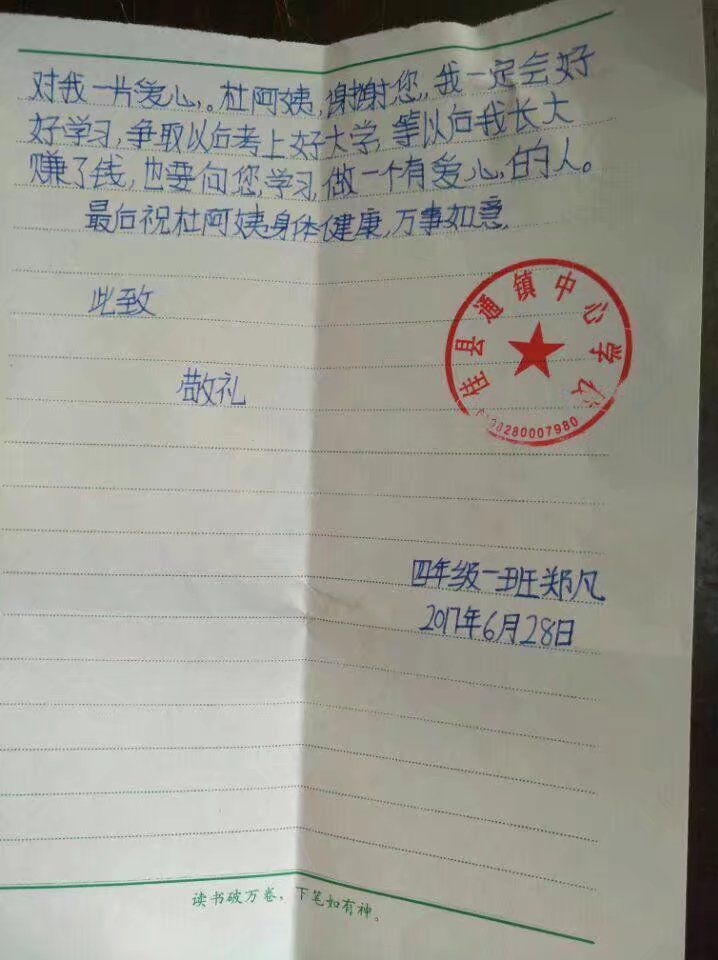 对我一片爱心,。杜阿姨,谢谢您,我一定会好
好学习,争取以后考上好大学,等以后我长大
赚了钱,也要向您,学习,做一个有爱心,的人。
最后祝杜阿姨身体健康,万事如意.
此致
敬礼
佳县通镇中心学校
80280007980
四年级一班郑凡
2017年6月28日
读书破万卷，下笔如有神。